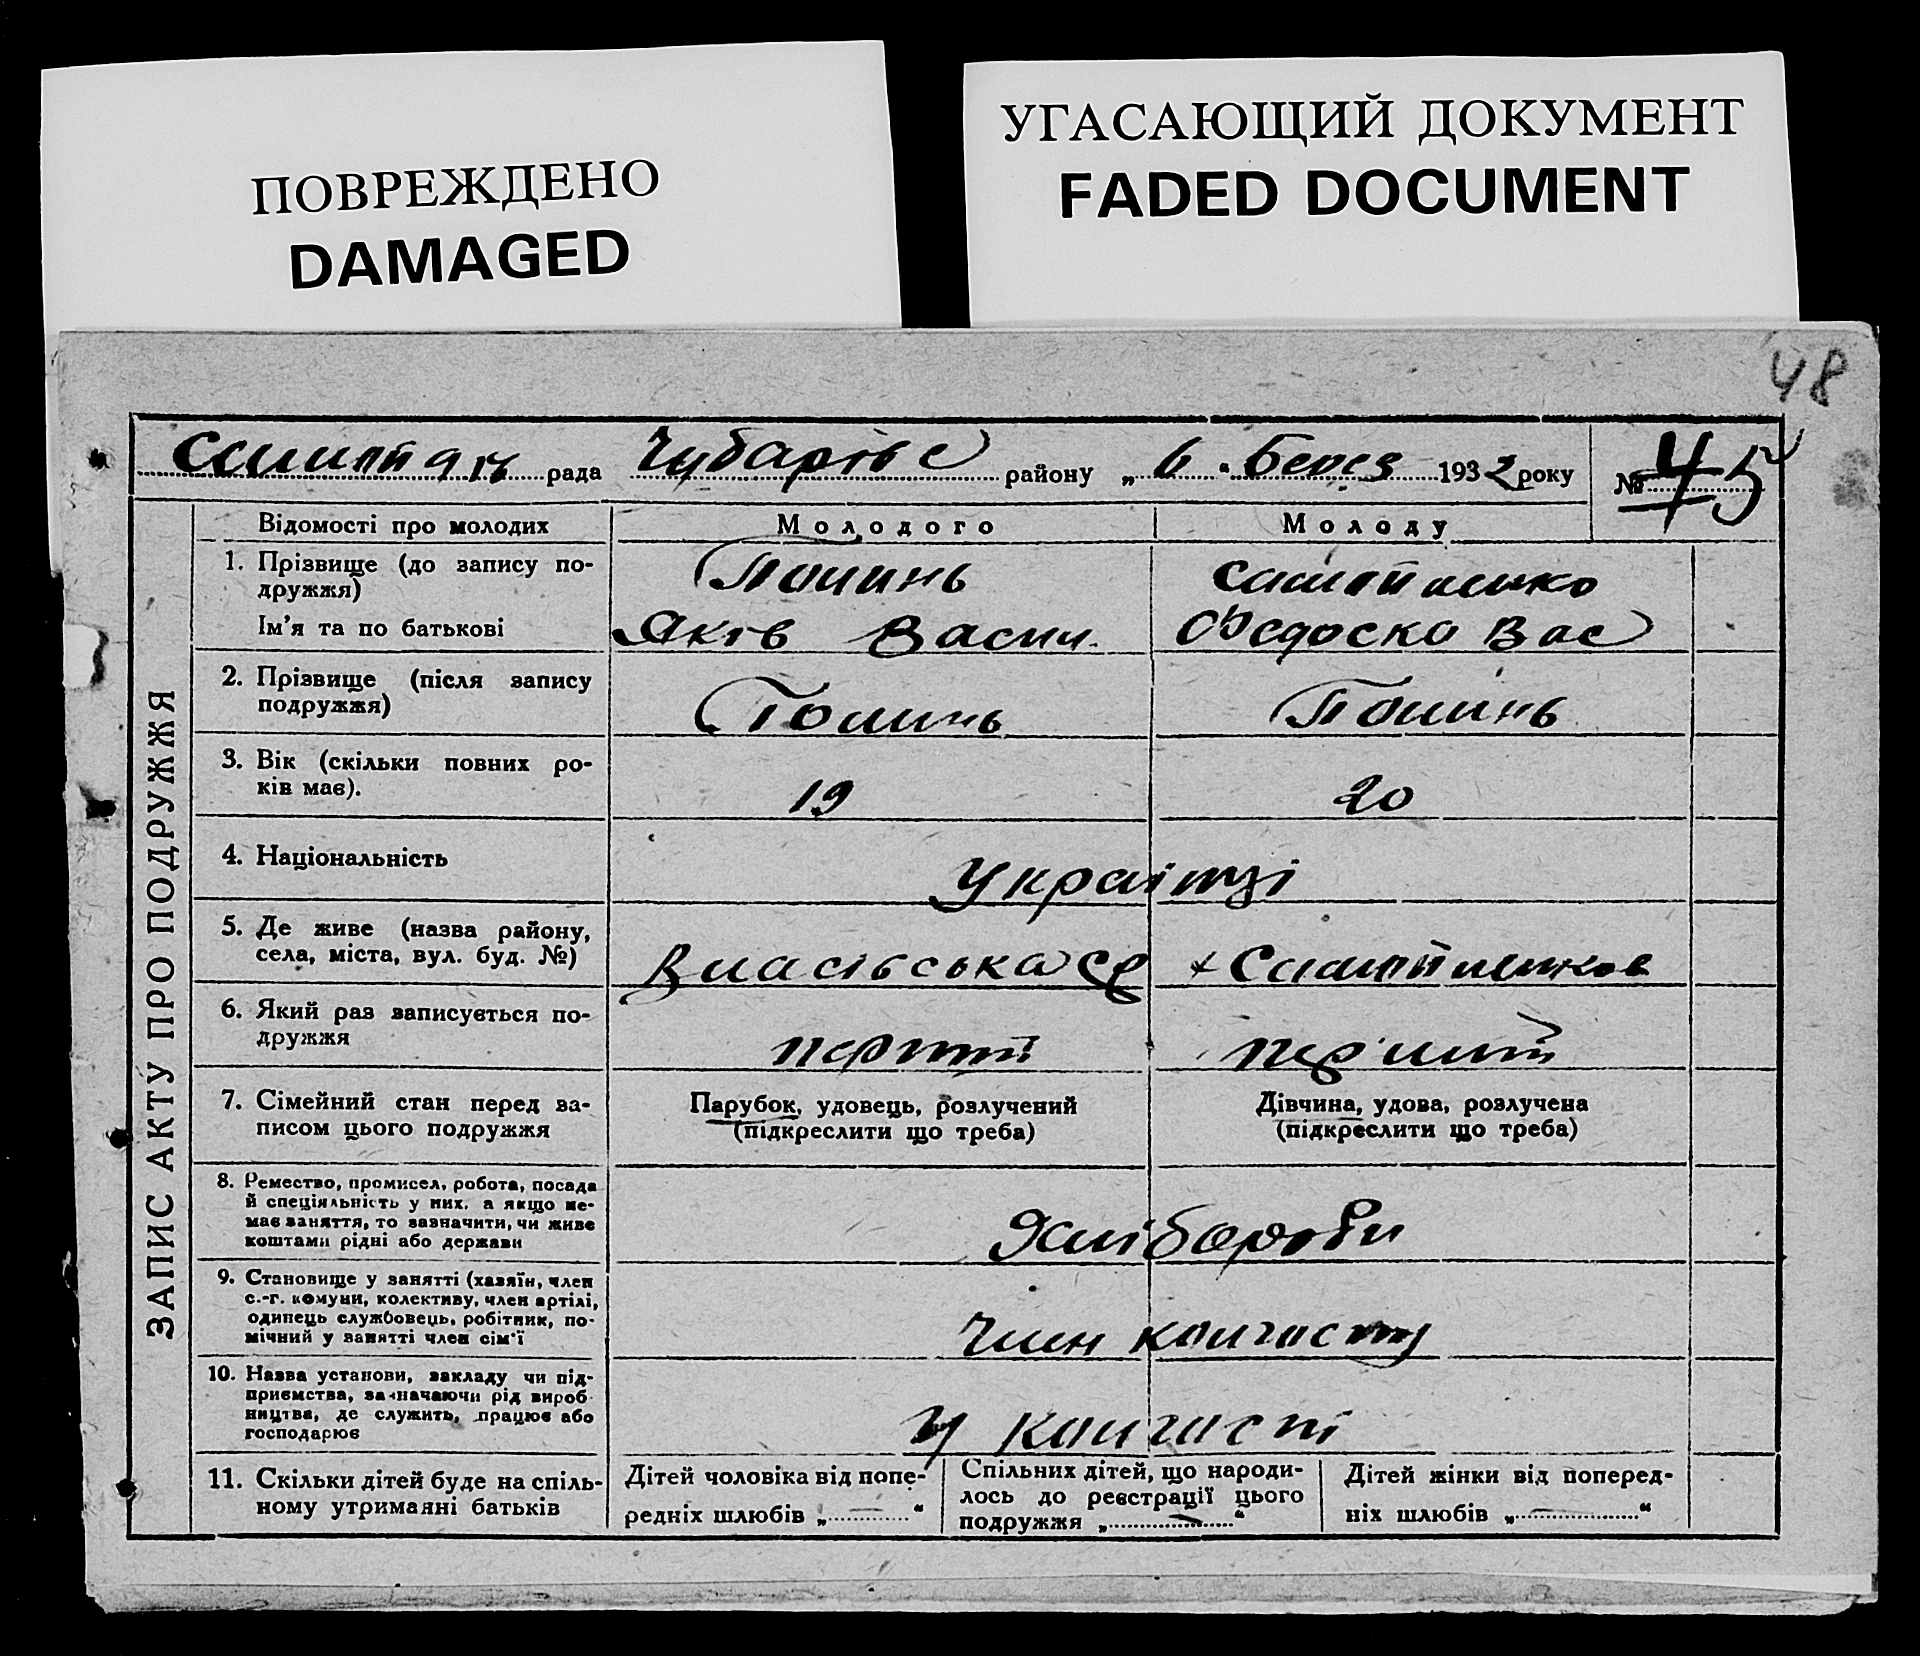 ПОВРЕЖДЕНО
DAMAGED
УГАСАЮЩИЙ ДОКУМЕНТ
FADED DOCUMENT
48
рада Чубарівс району „ 6 " Берез 1932 року № 45
ЗАПИС АКТУ ПРО ПОДРУЖЖЯ
Відомості про молодих Молодого Молоду
1. Прізвище (до запису по-
дружжя)
Ім'я та по батькові
Яків Васил. Федоска Вас
2. Прізвище (після запису
подружжя)
3. Вік (скільки повних ро-
ків має).
19 20
4. Національність
Українці
5. Де живе (назва району,
села, міста, вул. буд. №)
Власівська
6. Який раз записується по-
дружжя
перший перший
7. Сімейний стан перед за-
писом цього подружжя
Парубок, удовець, розлучений
(підкреслити що треба)
Дівчина, удова, розлучена
(підкреслити що треба)
8. Ремество, промисел, робота, посада
й спеціяльність у них, а якщо не-
має заняття, то зазначити, чи живе
коштами рідні або держави
Хлібороби
9. Становище у занятті (хазяїн, член
с.-г. комуни, колективу, член артілі,
одинець службовець, робітник, по-
мічний у занятті член сім'ї
Член колгоспу
10. Назва установи, закладу чи під-
приємства, зазначаючи рід вироб-
ництва, де служить, працює або
господарює
У колгоспі
11. Скільки дітей буде на спіль-
ному утриманні батьків
Дітей чоловіка від попе-
редніх шлюбів „ — "
Спільних дітей, що народи-
лось до реєстрації цього
подружжя „ — "
Дітей жінки від поперед-
ніх шлюбів „ — "